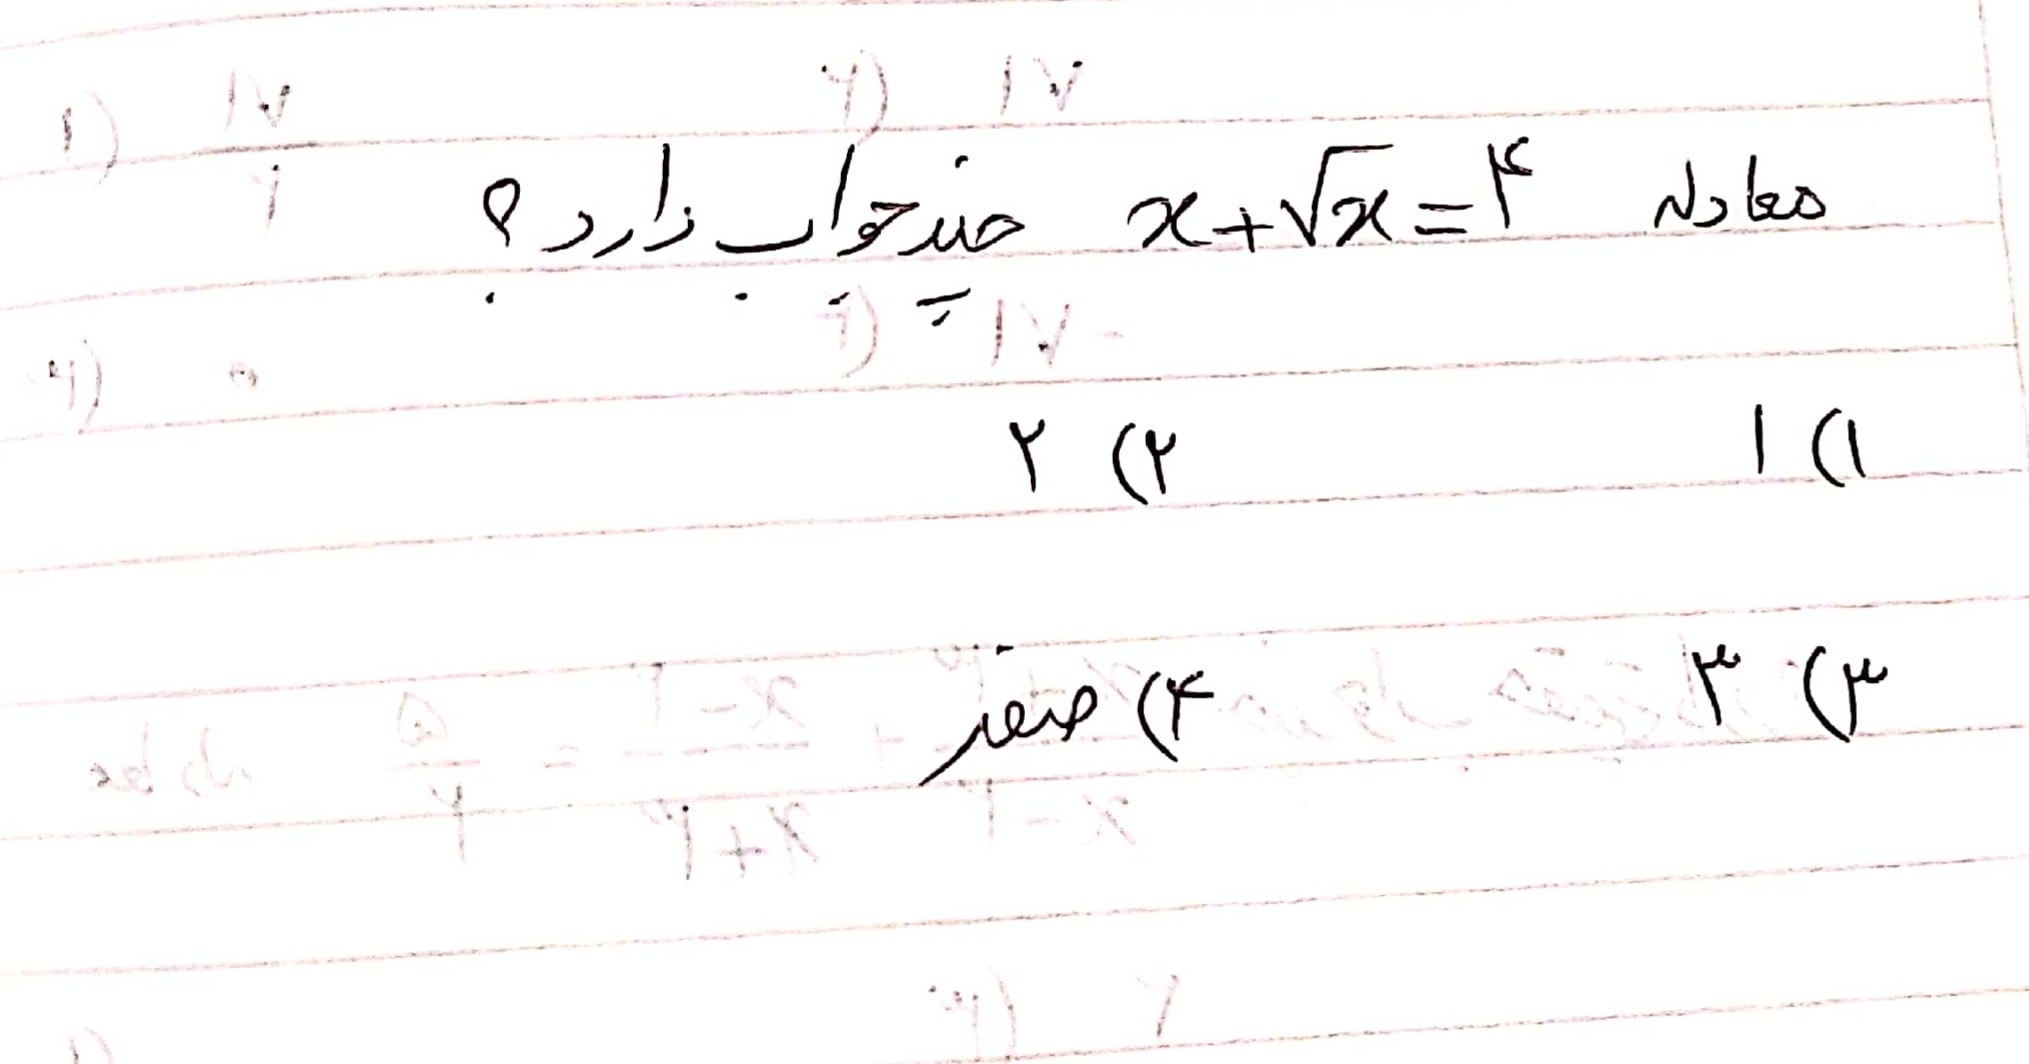 معادله x+√x=۴ چند جواب دارد؟
۱) ۱ ۲) ۲
۳) ۳ ۴) صفر